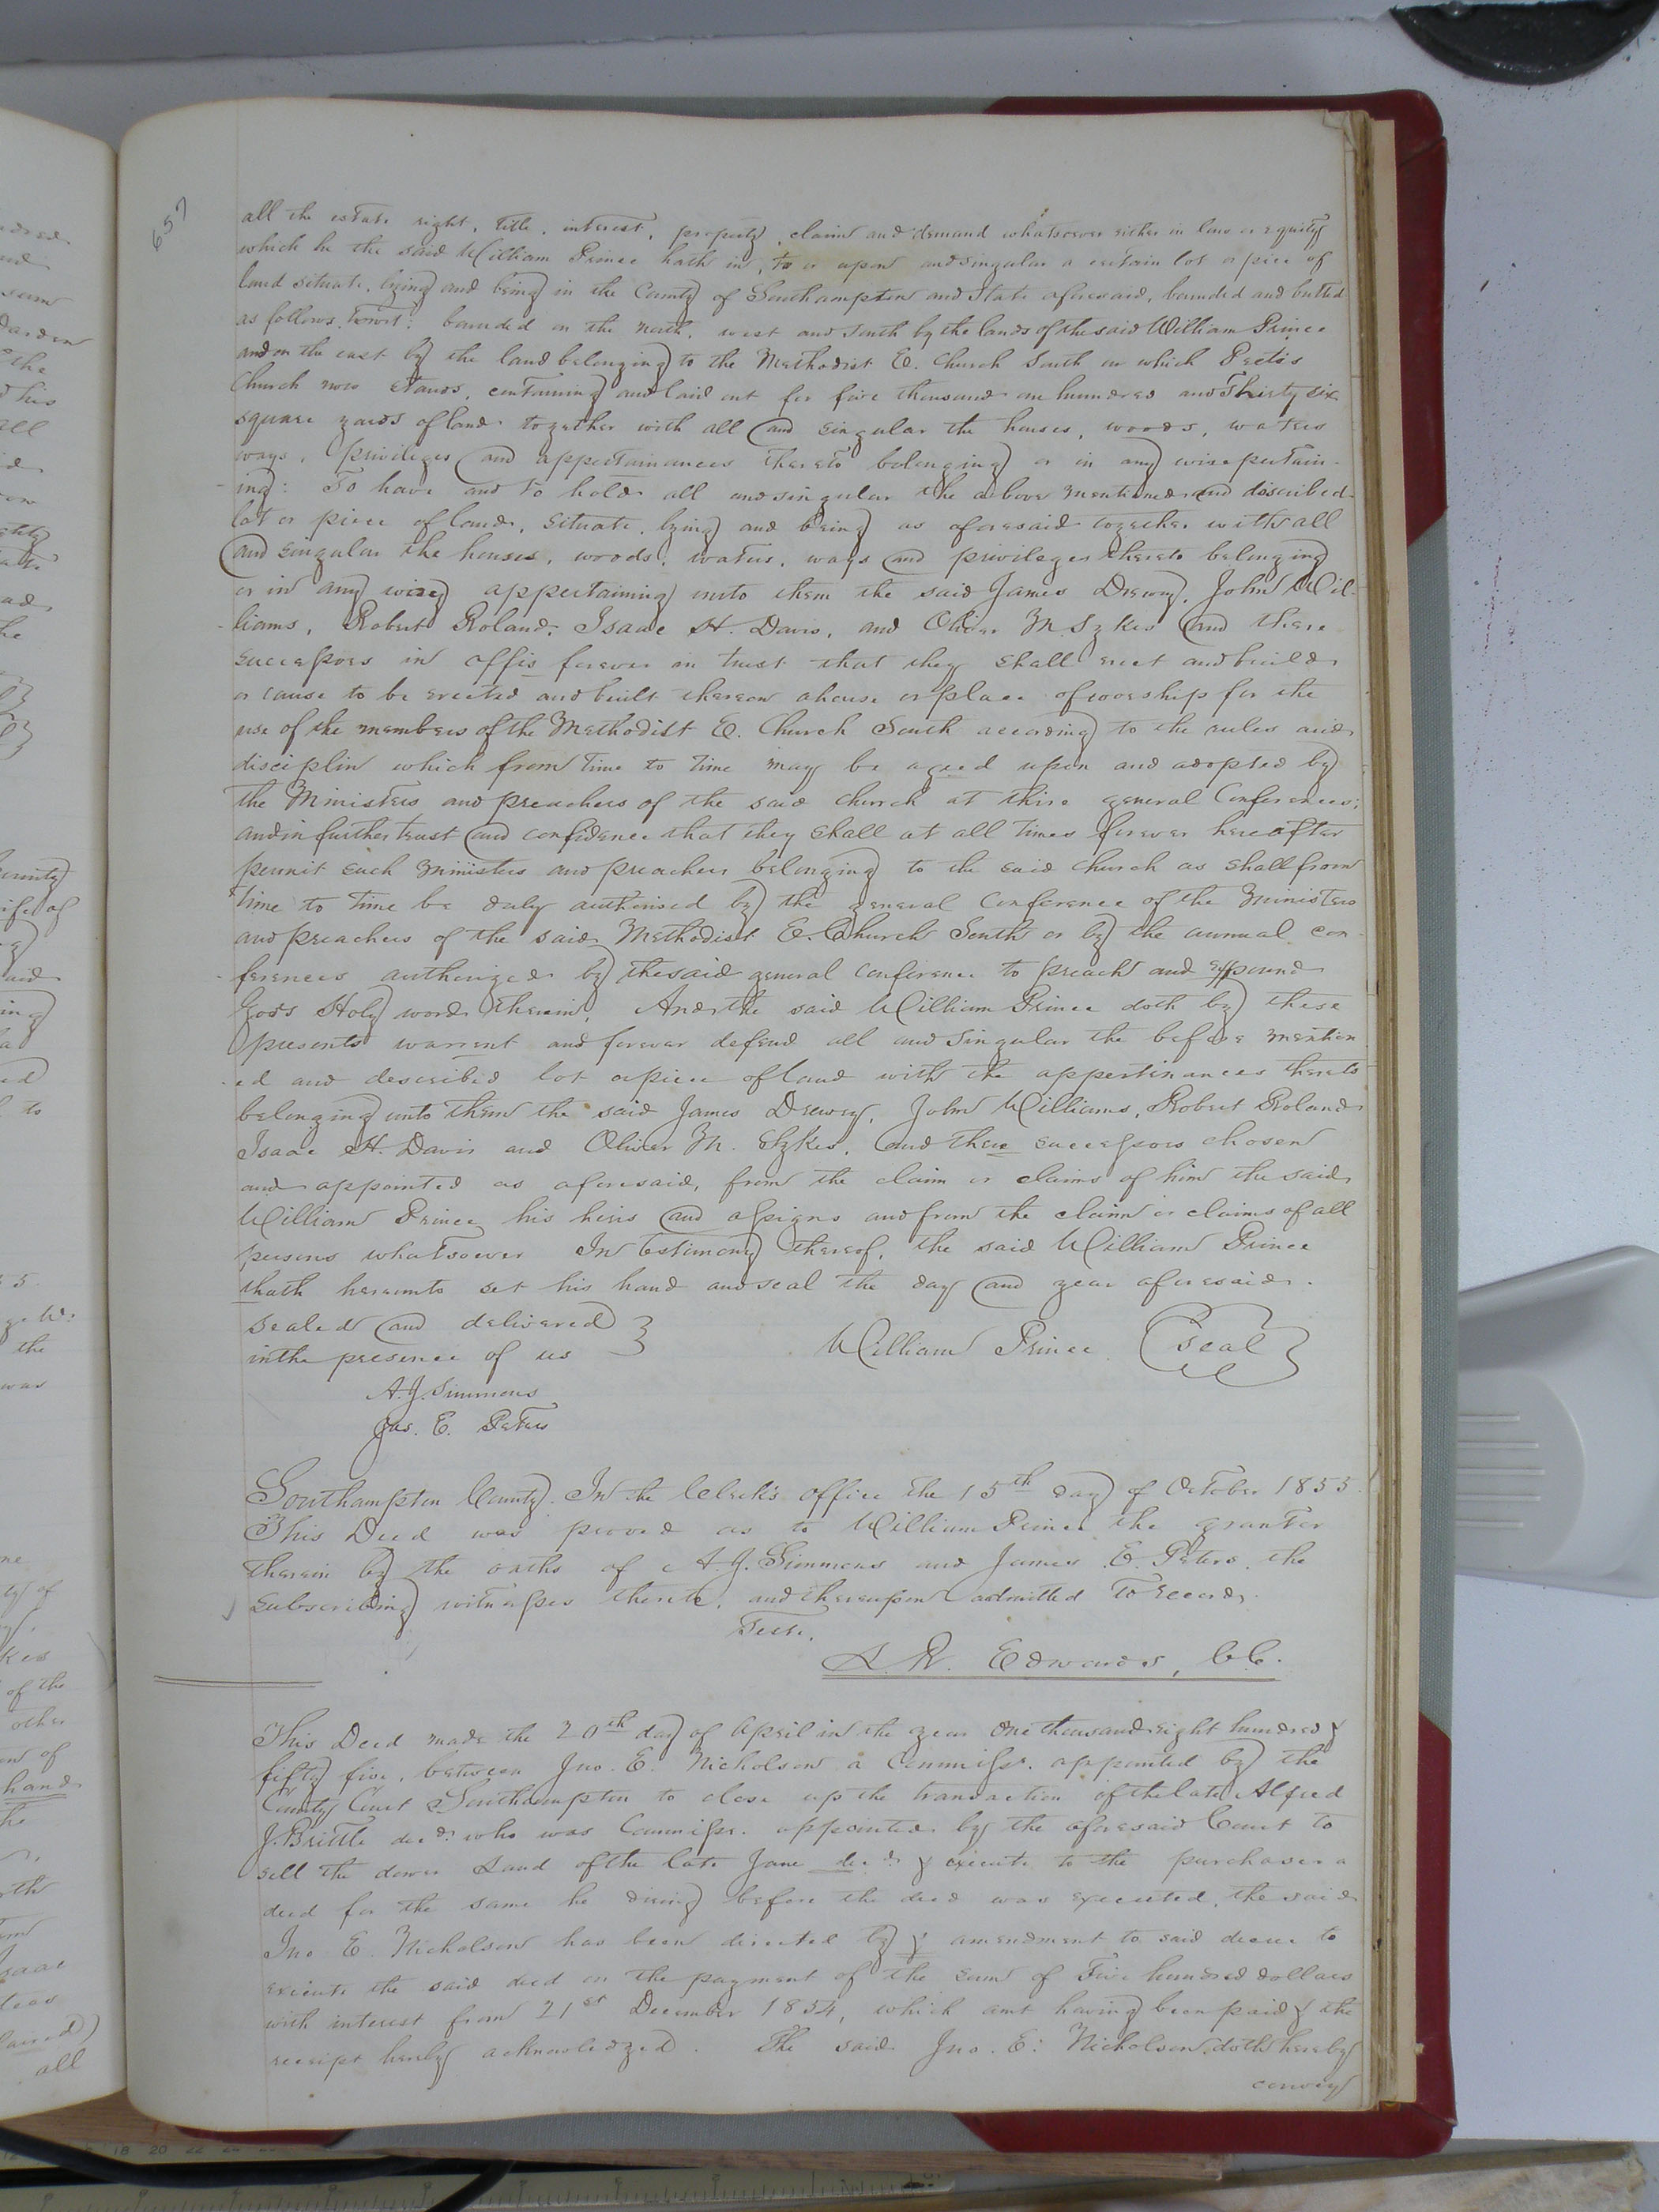 657
all the estate right, title, interest, property, claim and demand whatsoever either in law or equity
which he the said William Prince hath in, to or upon and singular a certain lot or piece of
land situate, lying and being in the County of Southampton and State aforesaid, bounded and butted
as follows, towit: bounded on the north, west and South by the lands of the said William Prince
and on the east by the land belonging to the Methodist E. Church South on which
Church now stands, containing and laid out for five thousand one hundred and Thirty six
square yards of land together with all and singular the houses, woods, waters
ways, privileges and appertainances thereto belonging or in any wise pertain-
ing: To have and to hold all and singular the above mentioned and discribed
lot or piece of land, situate, lying and being as aforesaid together with all
and singular the houses, woods, waters, ways and privileges thereto belonging
or in any wise appertaining unto them the said James Drewry, John Wil-
liams, Robert Roland, Isaac H. Davis, and Oliver M. Sykes and there
successors in offis forever in trust that they shall erect and build
or cause to be erected and built thereon a house or place of worship for the
use of the members of the Methodist E. Church South according to the rules and
disciplin which from time to time may be agreed upon and adopted by
the Ministers and preachers of the said church at thire general Conferences;
and in further trust and confidence that they shall at all times forever hereafter
permit such ministers and preachers belonging to the said church as shall from
time to time be duly authorised by the general Conference of the Ministers
and preachers of the said Methodist E. Church South or by the annual con-
ferences authorized by the said general conference to preach and expound
Gods Holy word therein. And the said William Prince doth by these
presents warrent and forever defend all and singular the before mention
ed and described lot or piece of land with the appertinances thereto
belonging unto them the said James Drewry, John Williams, Robert Roland
Isaac H. Davis and Oliver M. Sykes, and there successors chosen
and appointed as aforesaid, from the claim or claims of him the said
William Prince his heirs and assigns and from the claim or claims of all
persons whatsoever In testimony thereof, the said William Prince
thath hereunto set his hand and seal the day and year aforesaid.
Sealed and delivered }
in the presence of us William Prince (seal)
A. J. Simmons
Jas. E. Peters
Southampton County. In the Clerk's office the 15th day of October 1855.
This Deed was proved as to William Prince the grantor
therein by the oaths of A. J. Simmons and James E. Peters the
subscribing witnesses thereto, and thereupon admitted to record.
Teste,
L. R. Edwards, CC.
This Deed made the 20th day of April in the year One thousand eight hundred &
fifty five, between Jno. E. Nicholson a Commissr. appointed by the
County Court Southampton to close up the transaction of the late Alfred
J. Brittle decd. who was Commissr. appointed by the aforesaid Court to
sell the dower Land of the late Jane decd. & execute to the purchaser a
deed for the same he diing before the deed was executed, the said
Jno E. Nicholson has been directed by & amendment to said decree to
execute the said deed on the payment of the sum of Five hundred dollars
with interest from 21st December 1854, which amt having been paid & the
receipt hereby acknowledged. The said Jno. E. Nicholson doth hereby
convey